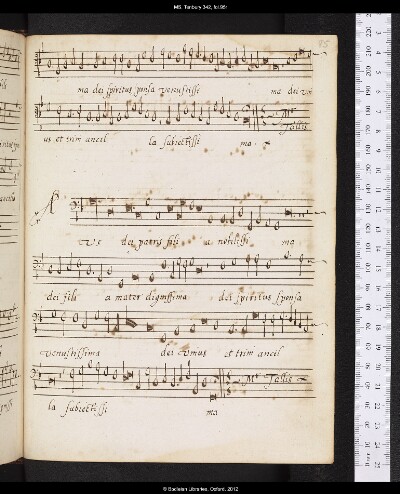 MS. Tenbury 342, fol.95r
95
ma dei spiritus sponsa venustissi ma dei vni
us et trim ancil la subiectissi ma
Mr Tallis
Ave dei patris fili a nobilissi ma
dei fili a mater dignissima dei spiritus sponsa
venustissima dei vnius et trim ancil
la subiectissi ma
Mr Tallis
© Bodleian Libraries, Oxford, 2012